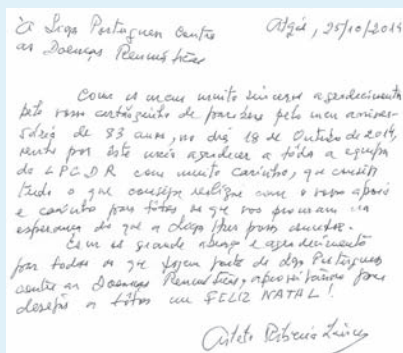 À Liga Portuguesa Contra Algés, 25/10/2014
as Doenças Reumáticas
Com os meus muito sinceros agradecimentos
pelo vosso cartãozinho de parabéns pelo meu aniver-
sário de 83 anos, no dia 18 de Outubro de 2014,
venho por este meio agradecer a tôda a equipa
da LPCDR com muito carinho, que
tudo o que consiga realizar com o vosso apoio
e carinho para tôdos os que vos procuram na
esperança de que a Liga lhes possa
Com um grande abraço e agradecimento
por todos os que fazem parte da Liga Portuguesa
contra as Doenças Reumáticas, aproveitando para
desejar a tôdos um FELIZ NATAL!